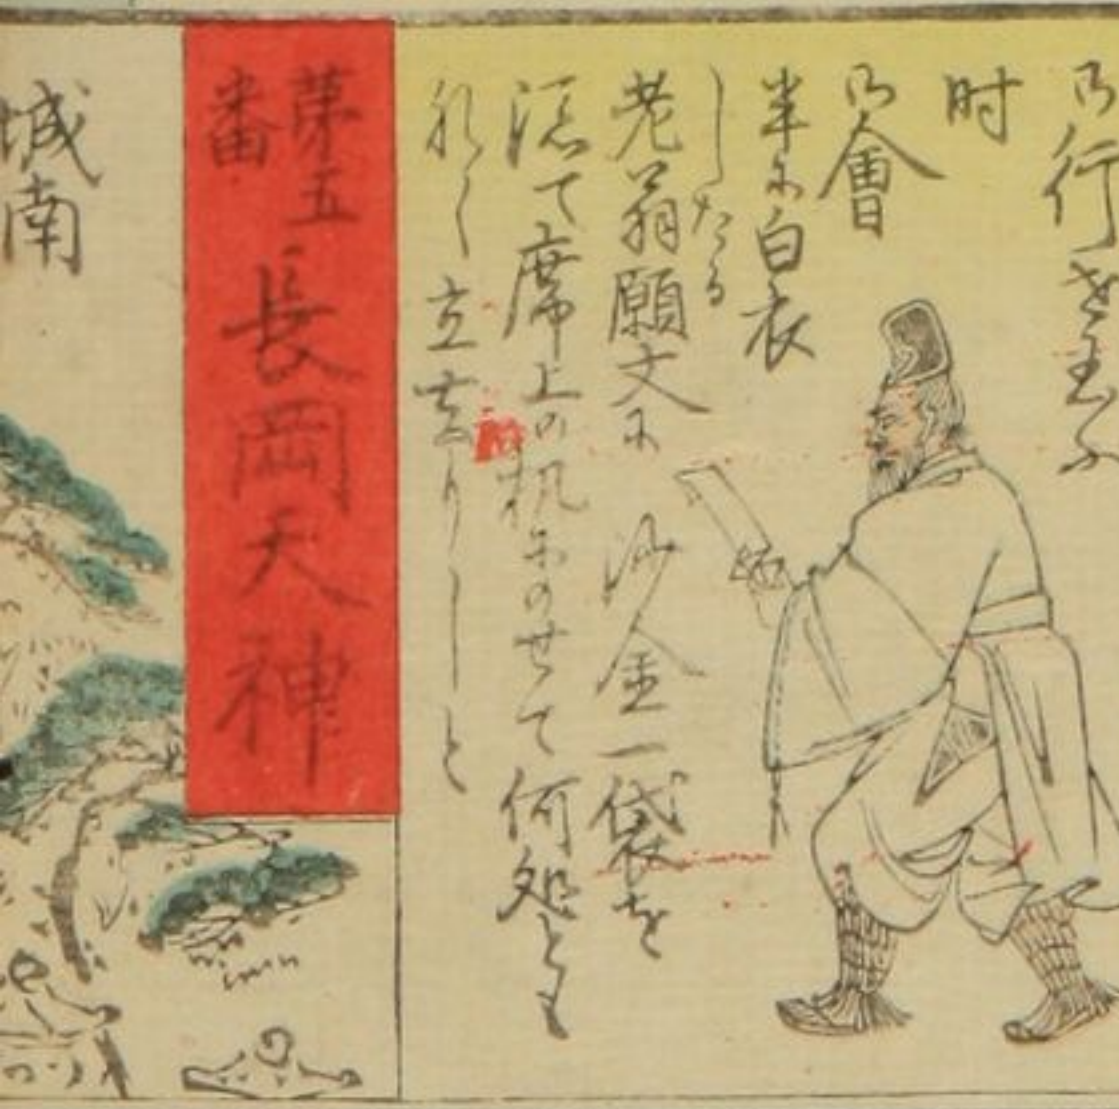 御行をまふ
时
御會
半に白衣
したる
老翁願文に 沙金一袋を
添て席上の机にのせて何処とも
なく 立去りしと
第五
番
長岡天神
城南